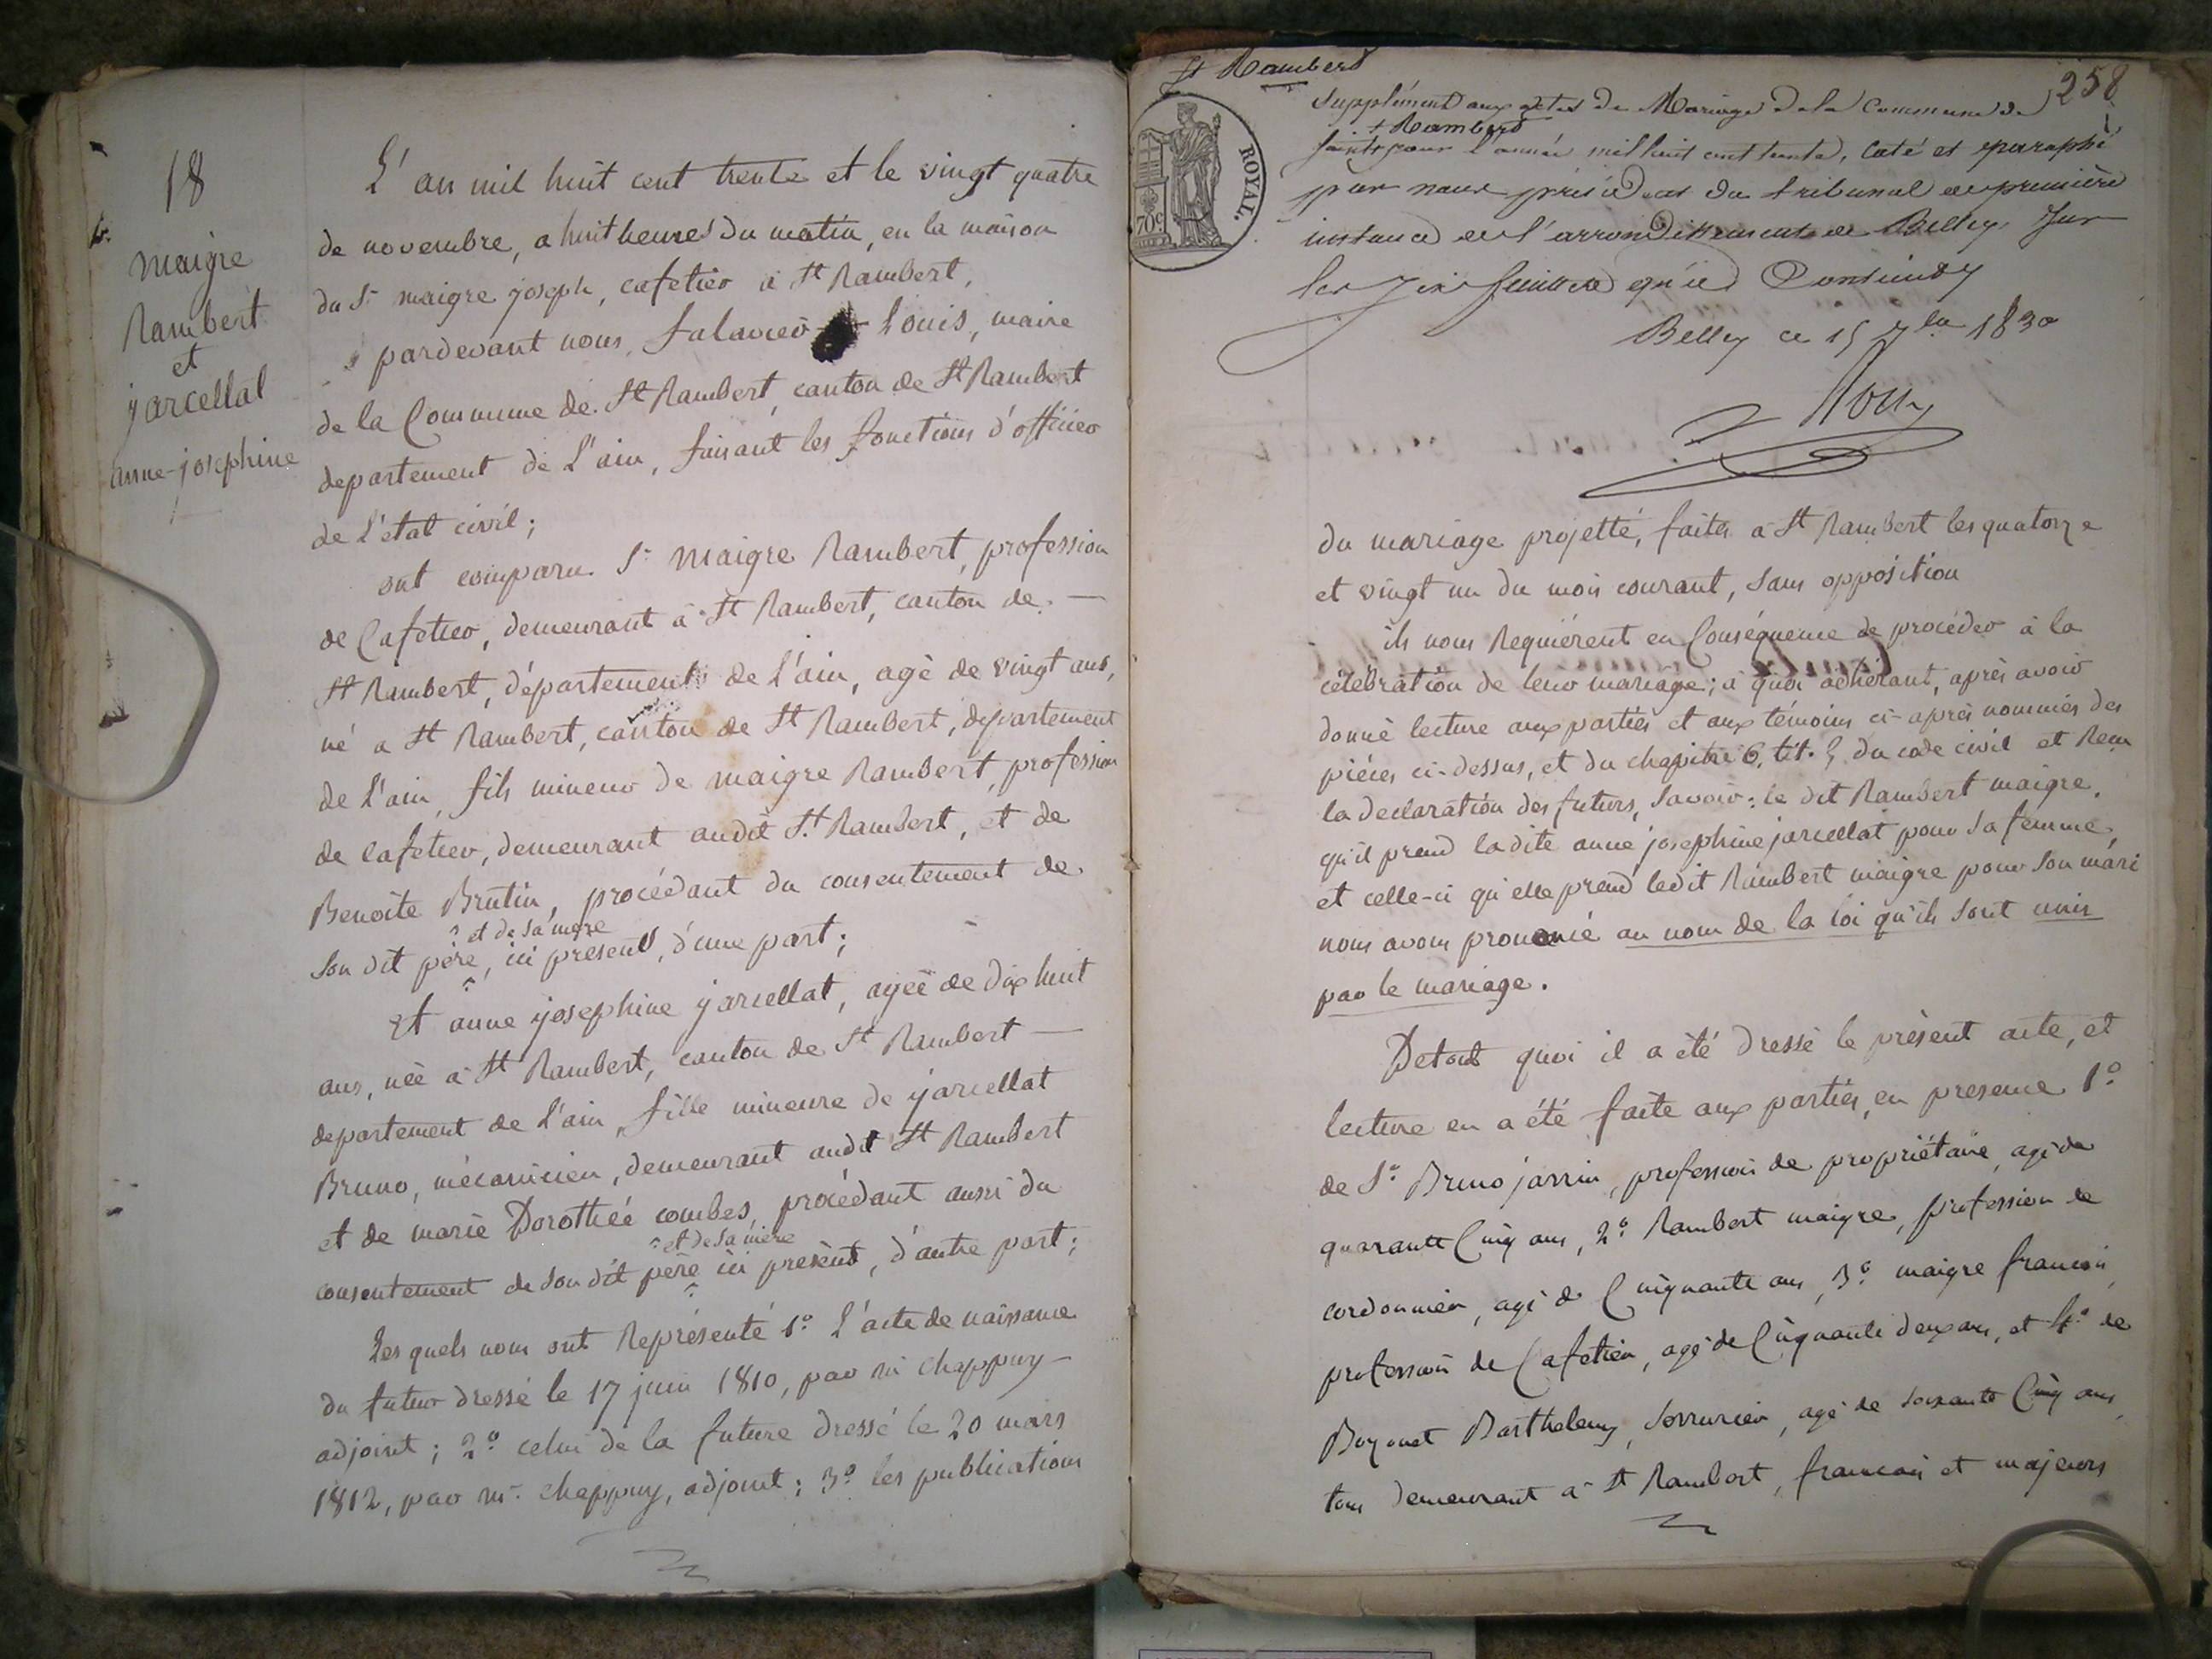 18
Maigre
Rambert
et
jarcellat
anne-josephine
L'an mil huit cent trente et le vingt quatre
de novembre, a huit heures du matin, en la maison
du Sr maigre joseph, cafetier à St Rambert,
pardevant nous, falavier Louis, maire
de la Commune de St Rambert, canton de St Rambert
departement de L'ain, faisant les fonctions d'officier
de L'etat civil;
ont comparu Sr Maigre Rambert, profession
de Cafetier, demeurant à St Rambert, canton de —
St Rambert, département de L'ain, agé de vingt ans,
né a St Rambert, canton de St Rambert, departement
de L'ain, fils mineur de maigre Rambert, profession
de cafetier, demeurant audit St Rambert, et de
Benoite Brutin, procédant du consentement de
^ et de sa mere
son dit père, ici présents, d'une part;
Et anne josephine jarcellat, agée de dix huit
ans, née à St Rambert, canton de St Rambert —
departement de L'ain, fille mineure de jarcellat
Bruno, mécanicien, demeurant audit St Rambert
et de marie Dorothée combes, procédant aussi du
^ et de sa mère
consentement de son dit père ici présents, d'autre part;
Les quels nous ont Représenté 1° L'acte de naissance
du futur dressé le 17 juin 1810, par mr Chappuy —
adjoint; 2° celui de la future dressé le 20 mars
1812, par mr. Chappuy, adjoint; 3° les publications
St Rambert
258
Supplément aux actes de Mariage de la Commune de
St Rambert
pour l'année mil huit cent trente, Coté et paraphé
par nous président du tribunal de première
instance de l'arrondissement de Belley, Sur
les feuillets qu'il Contient
Belley ce 15 1830
ROYAL.
70c.
du mariage projetté, faites à St Rambert les quatorze
et vingt un du mois courant, sans opposition
ils nous Requiérent en Conséquence de procéder à la
célébration de leur mariage; à quoi adhérant, après avoir
donné lecture aux parties et aux témoins ci-après nommés des
pièces ci-dessus, et du chapitre 6, tit. 5 du code civil et Reçu
la declaration des futurs, Savoir: le dit Rambert maigre,
qu'il prend ladite anne josephine jarcellat pour sa femme,
et celle-ci qu'elle prend ledit Rambert maigre pour son mari
nous avons prononcé au nom de la loi qu'ils sont unis
par le mariage.
De tout quoi il a été dressé le présent acte, et
lecture en a été faite aux parties, en presence 1°
de Sr Bruno jarrin, profession de propriétaire, agé de
quarante Cinq ans, 2° Rambert maigre, profession de
cordonnier, agé de Cinquante ans, 3° maigre francois,
profession de Cafetier, agé de Cinquante deux ans, et 4° de
Barthelemy, Serrurier, agé de soixante Cinq ans,
tous demeurant à St Rambert, francais et majeurs